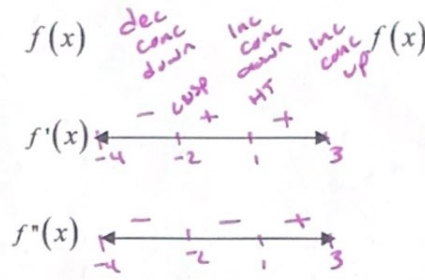 f(x) dec conc down inc conc down inc conc up f(x)
- cusp + HT +
f'(x) -4 -2 1 3
- - +
f"(x) -4 -2 1 3